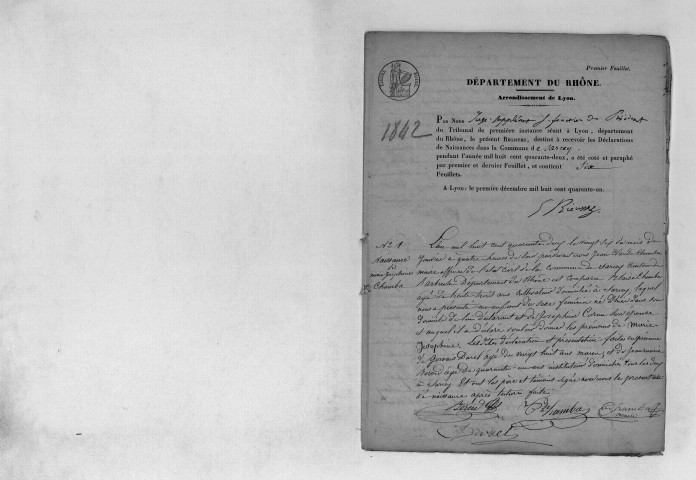 Premier Feuillet.
DÉPARTEMENT DU RHÔNE.
Arrondissement de Lyon.
1842
PAR NOUS Juge suppléant f. fonction de Président
du Tribunal de première instance séant à Lyon, département
du Rhône, le présent REGISTRE, destiné à recevoir les Déclarations
de Naissances dans la Commune de Sarcey
pendant l'année mil huit cent quarante-deux, a été coté et paraphé
par premier et dernier Feuillet, et contient Six
Feuillets.
A Lyon, le premier décembre mil huit cent quarante-un.
N° 1
Naissance
de
Marie Joséphine
Chamba
L'an mil huit cent quarante deux le vingt six du mois de
Janvier à quatre heures du soir par devant nous Jean Claude Chamba
maire officier de l'état civil de la commune de Sarcey canton de
Tarbredépartement du Rhône est comparu Chamba
âgé de trente huit ans cultivateur domicilié à Sarcey lequel
nous a présenté un enfant du sexe féminin né dans son
domicile de lui déclarant et de Joséphine son épouse
et auquel il a déclaré vouloir donner les prénoms de Marie
Joséphine. Les dites déclaration et présentation faites en présence
de âgé de vingt huit ans maçon et de
âgé de quarante un ans instituteur domiciliés tous les deux
à Sarcey et ont les père et témoins signé avec nous le présent acte
de naissance après lecture faite.
Chamba Chamba
maire